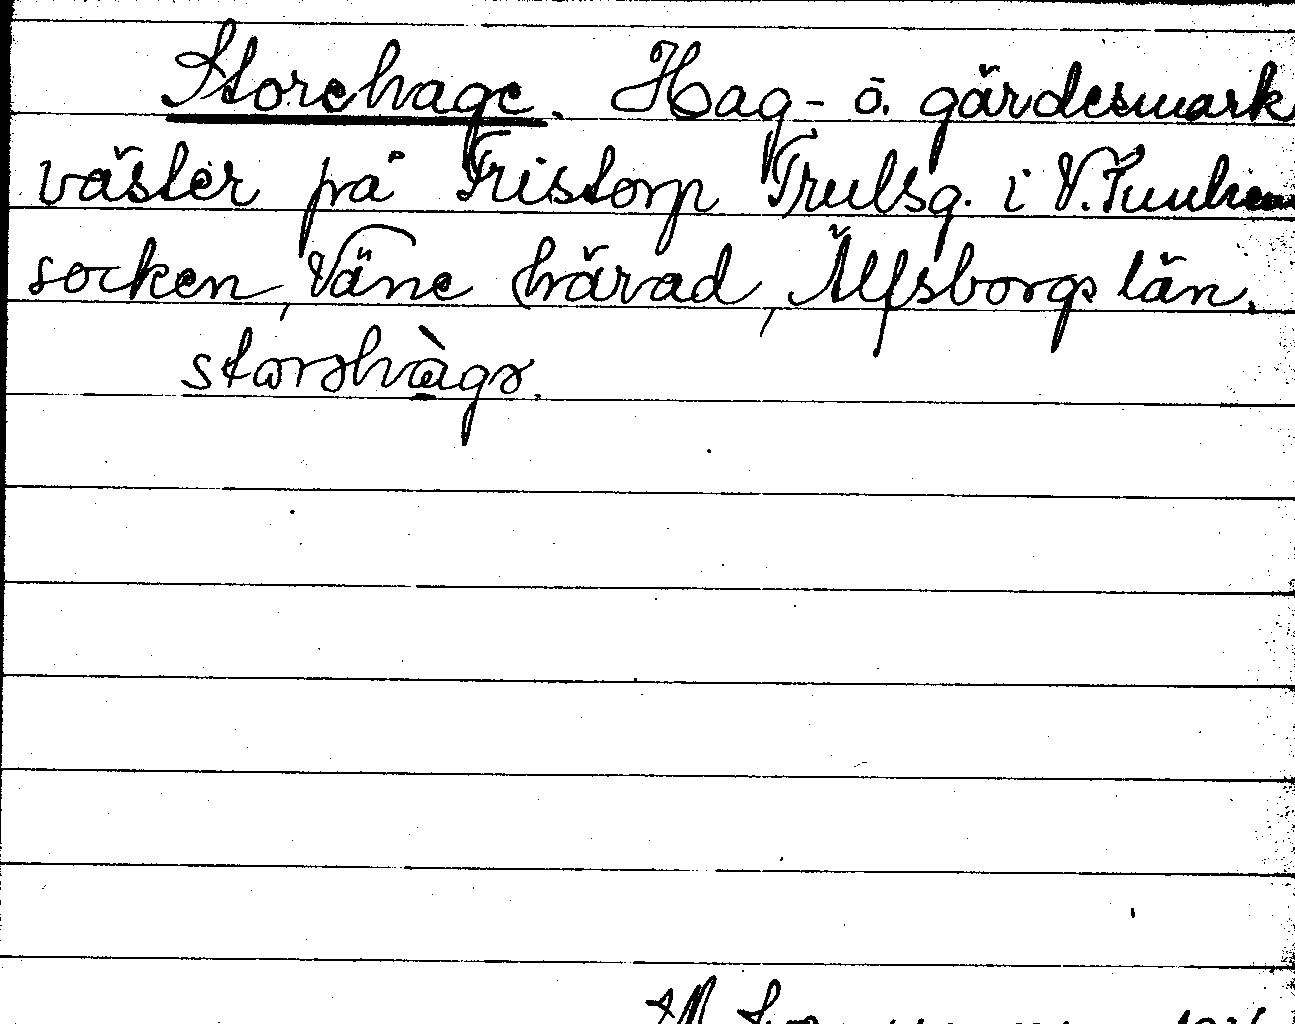 Storehage. Hag- o. gärdesmark
väster på Tristorp Trulsg. i V. Tunhem
socken, Väne härad, Älfsborgs län.
storəhàgə.